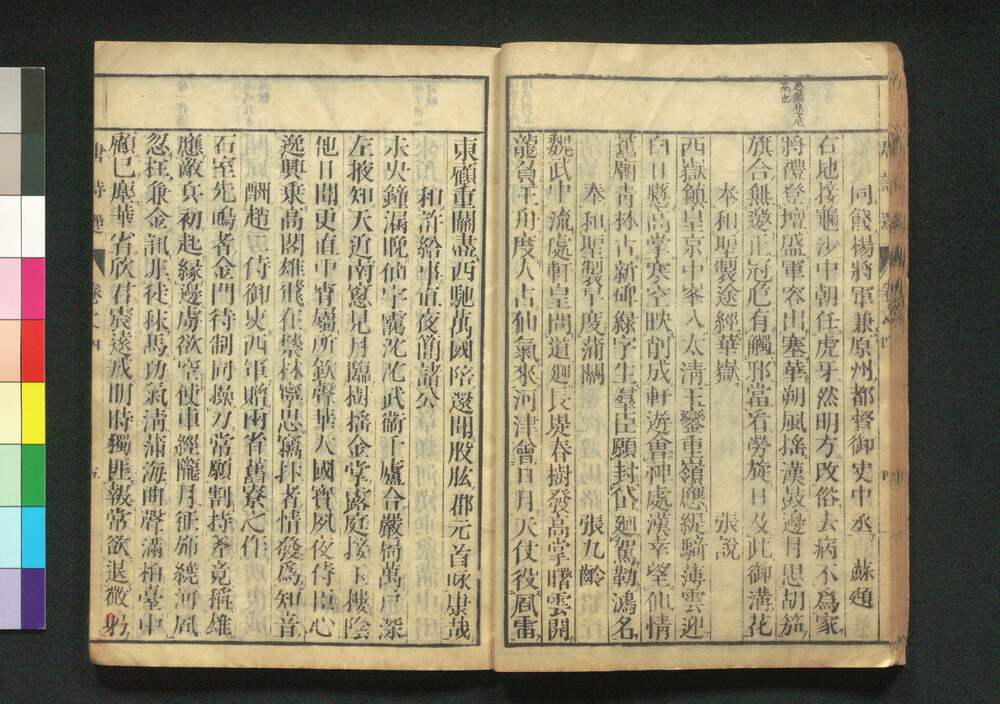 同餞楊將軍兼原州都督御史中丞　蘇頲
右地接龜沙中朝任虎牙然明方改俗去病不爲家
將禮登壇盛軍容出塞華朔風搖漢鼓邊月思胡笳
旗合無邀正冠危有觸邪當看勞旋日及此御溝花
奉和聖製途經華嶽　張說
西嶽鎮皇京中峯入太清玉鑾重嶺應緹騎薄雲迎
白日懸高掌寒空映削成軒遊會神處漢幸望仙情
舊廟青林古新碑綠字生羣臣願封岱廻駕勒鴻名
奉和聖製早度蒲關　張九齡
魏武中流處軒皇問道廻長堤春樹發高掌曙雲開
龍負王舟度人占仙氣來河津會日月天仗役風雷
東顧重關盡西馳萬國陪還聞股肱郡元首詠康哉
和許給事直夜簡諸公
未央鐘漏晚仙宇靄沉沉武衛千廬合嚴扃萬戶深
左掖知天近南窗見月臨樹搖金掌露庭接玉樓陰
他日聞更直中宵屬所欽聲華大國寶夙夜侍臣心
逸興乘高閣雄飛在禁林寧思竊抃者情發爲知音
酬趙二侍御史西軍贈兩省舊寮之作
石室先鳴者金門待制同操刀常願割持斧竟稱雄
應敵兵初起緣邊虜欲空使車經隴月征旆繞河風
忽枉兼金訊非徒秣馬功氣清蒲海曲聲滿柏臺中
顧已塵華省欣君震遠戎明時獨匪報常欲退微躬
唐詩選　卷之四　五